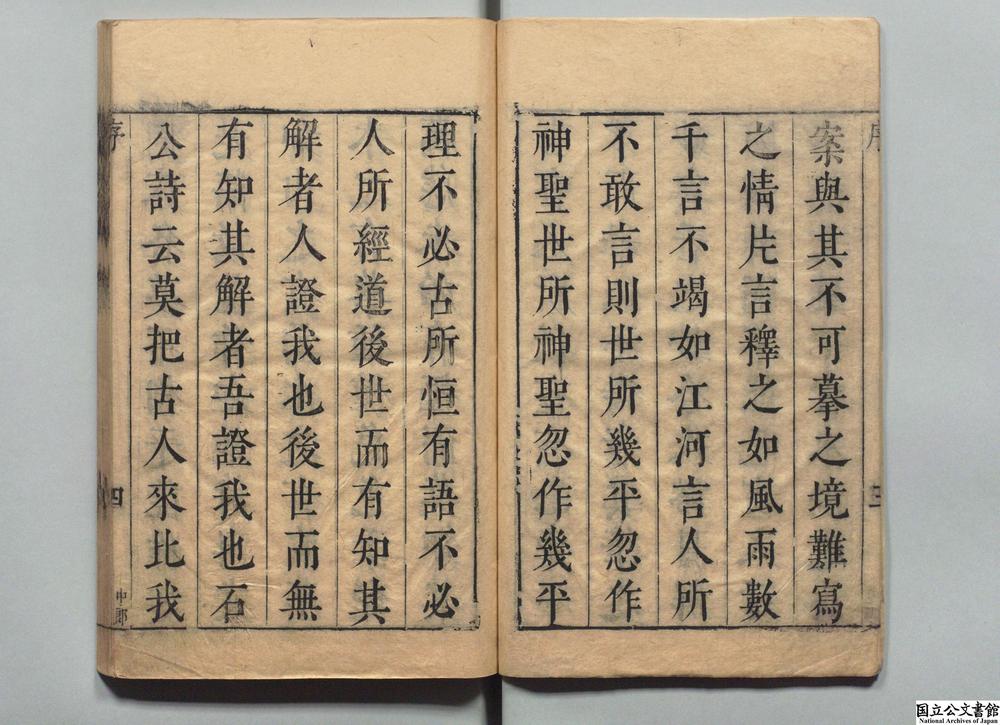 序
三
案與其不可摹之境難寫
之情片言釋之如風雨數
千言不竭如江河言人所
不敢言則世所幾平忽作
神聖世所神聖忽作幾平
理不必古所恒有語不必
人所經道後世而有知其
解者人證我也後世而無
有知其解者吾證我也石
公詩云莫把古人來比我
序
四
中郎
国立公文書館
National Archives of Japan